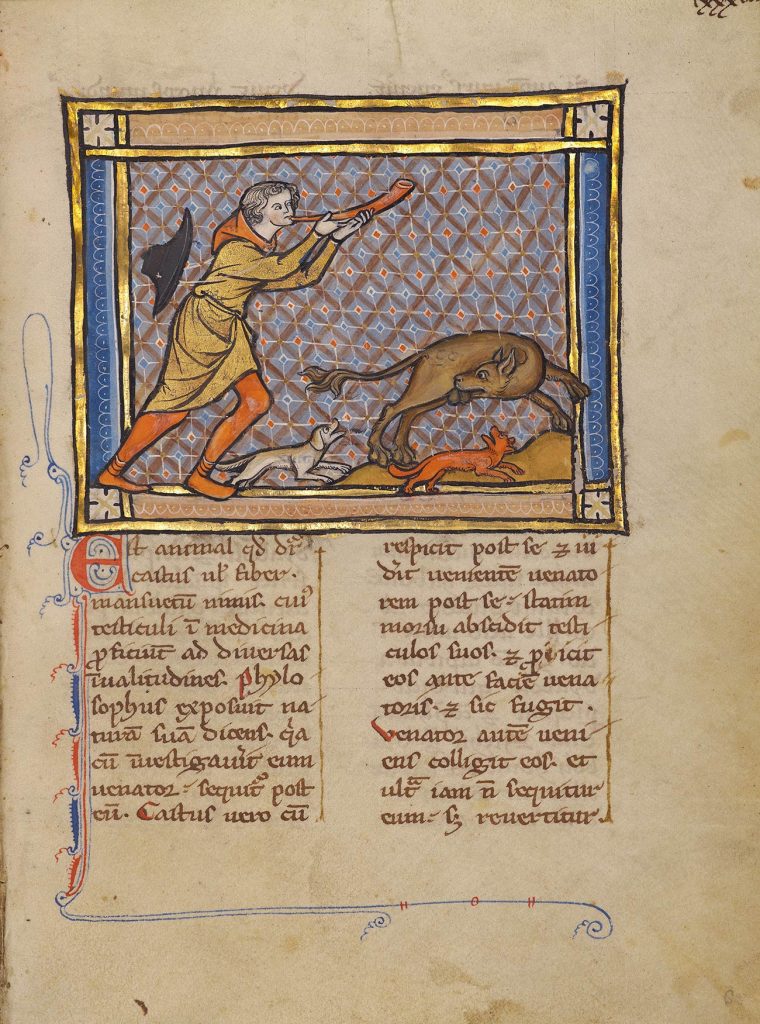 Est animal qd̄ dr̄
castus ul̓ fiber.
mansuetū nimis. cui᷒
testiculi ī medicina
ꝓficiunt ad diuersas
īualitudines. phylo
sophus exposuit na
turā suā dicens. qͥa
cū īuestigauͥit eum
uenator. sequit᷑ post
eū. Castus uero cū
respicit post se ⁊ ui
dīt uenientē uenato
rem post se. statim
morsu abscidit testi
culos suos. ⁊ ꝓicit
eos ante faciē uena
toris. ⁊ sic fugit.
Venator autē ueni
ens colligit eos. et
ultͣ iam n̄ sequitur
eum. sꝫ reuertitur.